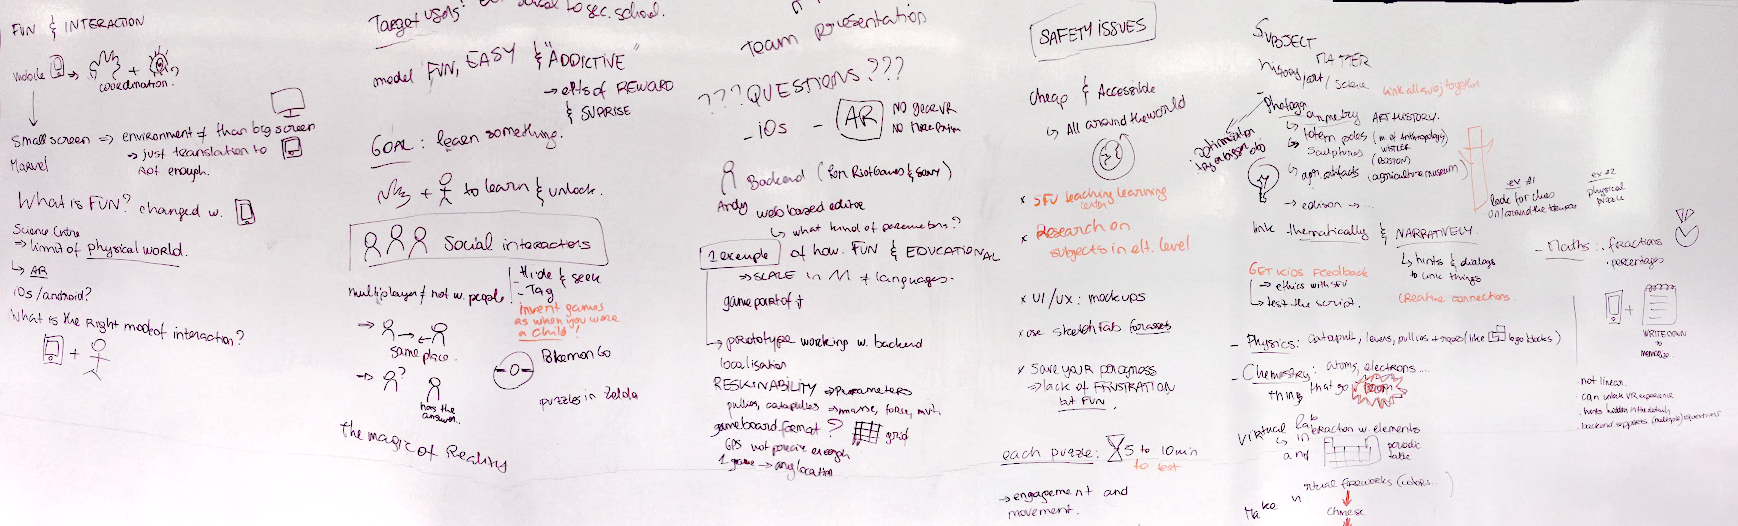 FUN & INTERACTION
mobile
+
coordination?
Small screen => environment ≠ than big screen
-> just translation to
not enough.
Marvel
What is FUN? changed w.
Science Centre
=> limit of physical world.
↳ AR
iOs/android?
What is the Right mode of interaction?
+
Target users:
to sec. school.
model FUN, EASY & "ADDICTIVE"
-> efts of REWARD
& SUPRISE
GOAL: learn something.
+ to learn & unlock.
Social interactions
multiplayer ≠ not w. people
- Hide & seek
- Tag
invent games
as when you were
a child!
same place.
?
has the
answer.
Pokemon Go
puzzles in Zelda
the magic of Reality
Team presentation
???QUESTIONS???
- iOs - AR
NO gearVR
Backend (from Riot Games & Sony)
Andy web based editor
↳ what kind of parameters?
1 example of how FUN & EDUCATIONAL
=> SCALE in M ≠ languages.
game part of it
-> prototype working w. backend
localisation
RESKINABILITY => Parameters
pullies, catapultes => masse, force, mvt.
gameboard format? grid
GPS not precise enough
1 game -> any location
SAFETY ISSUES
cheap & Accessible
↳ All around the world
x SFU teaching learning
center
x Research on
subjects in elt. level
x UI/UX: mockups
x use sketchfab for assets
x Save your progress
=> lack of FRUSTRATION
but FUN.
each puzzle: 5 to 10 min
to test
-> engagement and
movement.
SUBJECT
MATTER
history/art/Science
Link all subj together
photogrammetry ART HISTORY.
↳ totem poles (m. of Anthropology)
Sculptures
(BOSTON)
(agriculture museum)
-> edison -> ...
ex #1
look for clues
ex #2
physical
puzzle
link thematically & NARRATIVELY.
↳ hints & dialogs
to link things
GET KIDS FEEDBACK
-> ethics with SFU
-> test the script.
Creative connections.
- Physics: catapult, levers, pullies + ropes (like logo blocks)
- Chemestry: atoms, electrons...
thing that go BOOM
virtual lab
↳ interaction w. elements
periodic
table
virtual fireworks (colors...)
Make
Chinese
- Maths: . fractions
. percentages
+
WRITE DOWN
to
memorise
. not linear.
. can unlock VR experience
. hints hidden in the details
. backend supports (multiple) questions